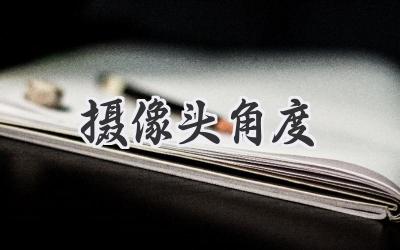 摄像头角度